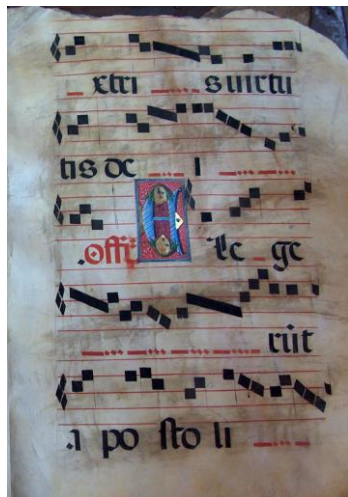 xtri s uirtu
tis de i
.offi. E le ge
rūt
.a po ſto li